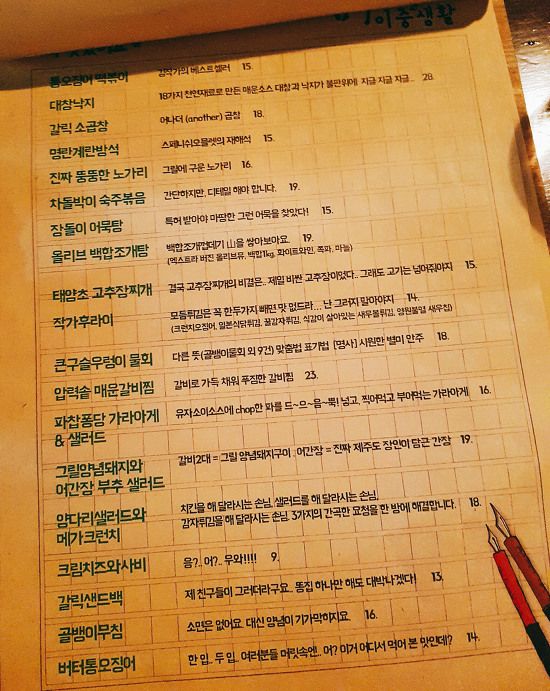 이중생활
통오징어 떡볶이 김작가의 베스트셀러 15.
대창낙지 18가지 천연재료로 만든 매운소스 대창과 낙지가 불판위에 지글 지글 지글... 28.
갈릭 소곱창 어나더 (another) 곱창 18.
명란계란방석 스페니쉬오믈렛의 재해석 15.
진짜 뚱뚱한 노가리 그릴에 구운 노가리 16.
차돌박이 숙주볶음 간단하지만, 디테일 해야 합니다. 19.
장돌이 어묵탕 특허 받아야 마땅한 그런 어묵을 찾았다! 15.
올리브 백합조개탕 백합조개껍데기 山을 쌓아보아요. 19.
(엑스트라 버진 올리브유, 백합1kg, 화이트와인, 쪽파, 마늘)
태양초 고추장찌개 결국 고추장찌개의 비결은.. 제일 비싼 고추장이었다.. 그래도 고기는 넣어줘야지 15.
작가후라이 모듬튀김은 꼭 한두가지 빼면 맛 없드라... 난 그러지 말아야지 14.
(크런치오징어, 일본식닭튀김, 꿀감자튀김, 식감이 살아있는 새우볼튀김, 양원불열 새우칩)
큰구슬우렁이 물회 다른 뜻(골뱅이물회 외 9건) 맞춤법·표기법 [명사] 시원한 별미 안주 18.
압력솥 매운갈비찜 갈비로 가득 채워 푸짐한 갈비찜 23.
파찹퐁당 가라아게 유자소이소스에 chop한 파를 드~으~음~뿍! 넣고, 찍어먹고 부어먹는 가라아게 16.
& 샐러드
그릴양념돼지와 갈비2대 = 그릴 양념돼지구이, 어간장 = 진짜 제주도 장인이 담근 간장 19.
어간장 부추 샐러드
양다리샐러드와 치킨을 해 달라시는 손님, 샐러드를 해 달라시는 손님,
메가크런치 감자튀김을 해 달라시는 손님. 3가지의 간곡한 요청을 한 방에 해결합니다. 18.
크림치즈와사비 응?.. 어?.. 우와!!!! 9.
갈릭샌드백 제 친구들이 그러더라구요.. 똥집 하나만 해도 대박나겠다! 13.
골뱅이무침 소면은 없어요. 대신 양념이 기가막히지요. 16.
버터통오징어 한 입.. 두 입... 여러분들 머릿속엔.. 어? 이거 어디서 먹어 본 맛인데? 14.